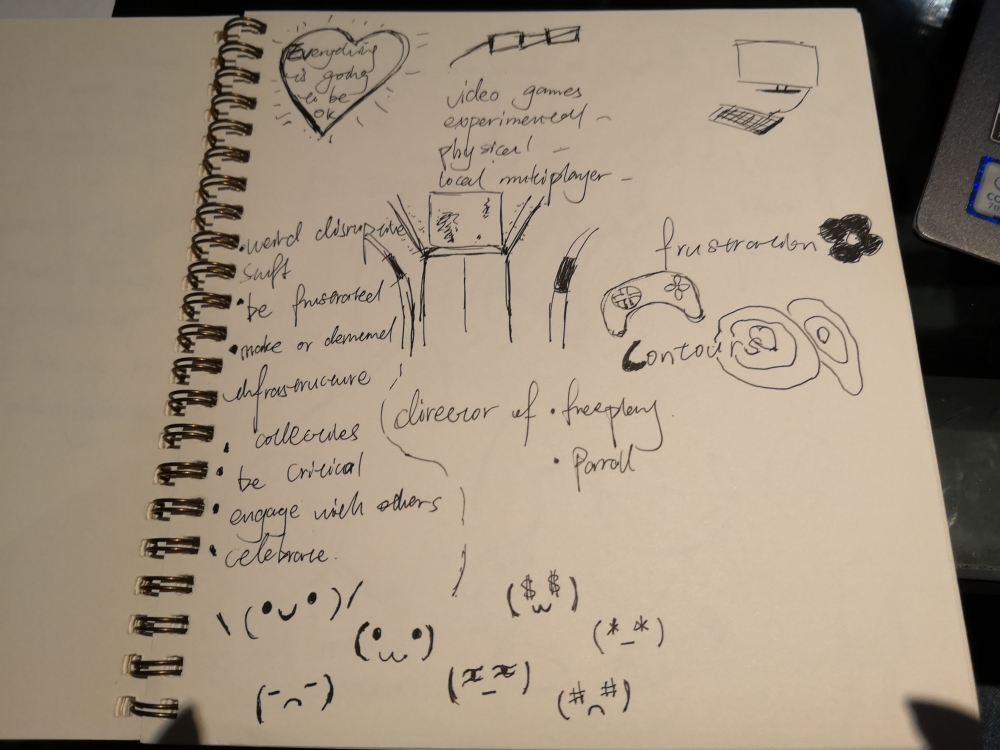 Everything
is going
to be
OK
video games
experimental -
physical -
local multiplayer -
• weird disruptive
stuff
• be frustrated
• make or demand
infrastructure
• collectives
• be critical
• engage with others
• celebrate.
frustration
Contours
director of • freeplay.
•
\(•ᴗ•)/
(•ω•)
($ω$)
(*_*)
(-︵-)
(#︵#)